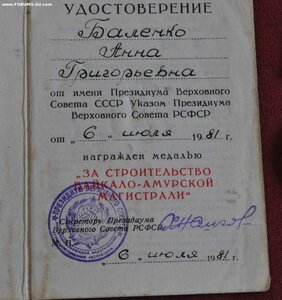 www.FORUMS-SU.com
УДОСТОВЕРЕНИЕ
Баленко
Анна
Григорьевна
от имени Президиума Верховного
Совета СССР Указом Президиума
Верховного Совета РСФСР
от „ 6 " июля 1981 г.
награжден медалью
„ЗА СТРОИТЕЛЬСТВО
БАЙКАЛО-АМУРСКОЙ
МАГИСТРАЛИ"
Секретарь Президиума
Верховного Совета РСФСР
М. П.
„ 6 " июля 1981 г.